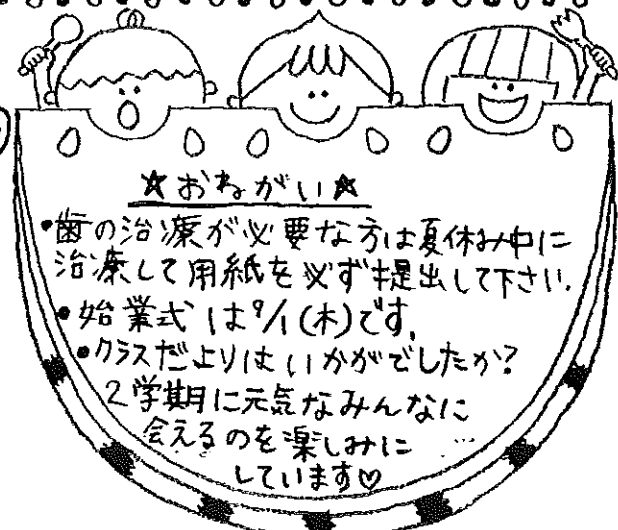 ☆おねがい☆
・歯の治療が必要な方は夏休み中に
治療して用紙を必ず提出して下さい.
・始業式は9/1(木)です.
・クラスだよりはいかがでしたか?
2学期に元気なみんなに
会えるのを楽しみに
しています♡